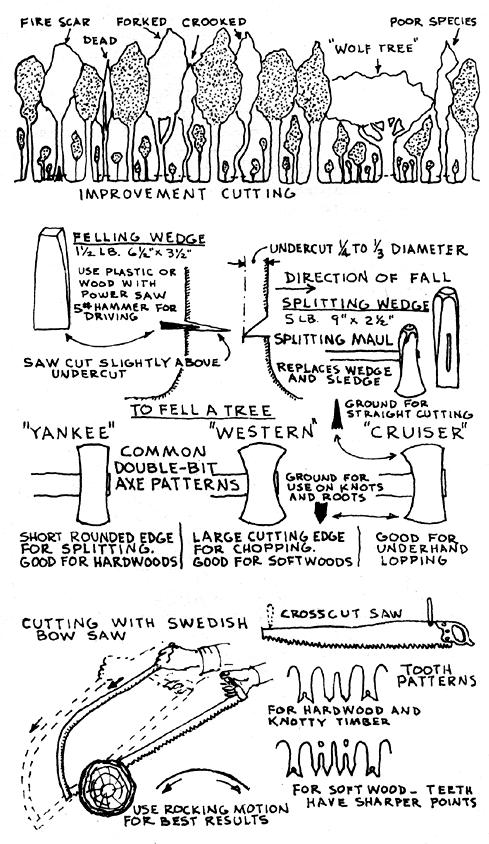 FIRE SCAR
FORKED
CROOKED
POOR SPECIES
DEAD
"WOLF TREE"
IMPROVEMENT CUTTING
FELLING WEDGE
1½ LB. 6½" X 3½"
USE PLASTIC OR
WOOD WITH
POWER SAW
5# HAMMER FOR
DRIVING
SAW CUT SLIGHTLY ABOVE
UNDERCUT
UNDERCUT ¼ TO ⅓ DIAMETER
DIRECTION OF FALL
SPLITTING WEDGE
5 LB. 9" X 2½"
SPLITTING MAUL
REPLACES WEDGE
AND SLEDGE
TO FELL A TREE
GROUND FOR
STRAIGHT CUTTING
"YANKEE"
"WESTERN"
"CRUISER"
COMMON
DOUBLE-BIT
AXE PATTERNS
GROUND FOR
USE ON KNOTS
AND ROOTS
SHORT ROUNDED EDGE
FOR SPLITTING.
GOOD FOR HARDWOODS
LARGE CUTTING EDGE
FOR CHOPPING.
GOOD FOR SOFTWOODS
GOOD FOR
UNDERHAND
LOPPING
CUTTING WITH SWEDISH
BOW SAW
CROSSCUT SAW
TOOTH
PATTERNS
FOR HARDWOOD AND
KNOTTY TIMBER
FOR SOFT WOOD - TEETH
HAVE SHARPER POINTS
USE ROCKING MOTION
FOR BEST RESULTS